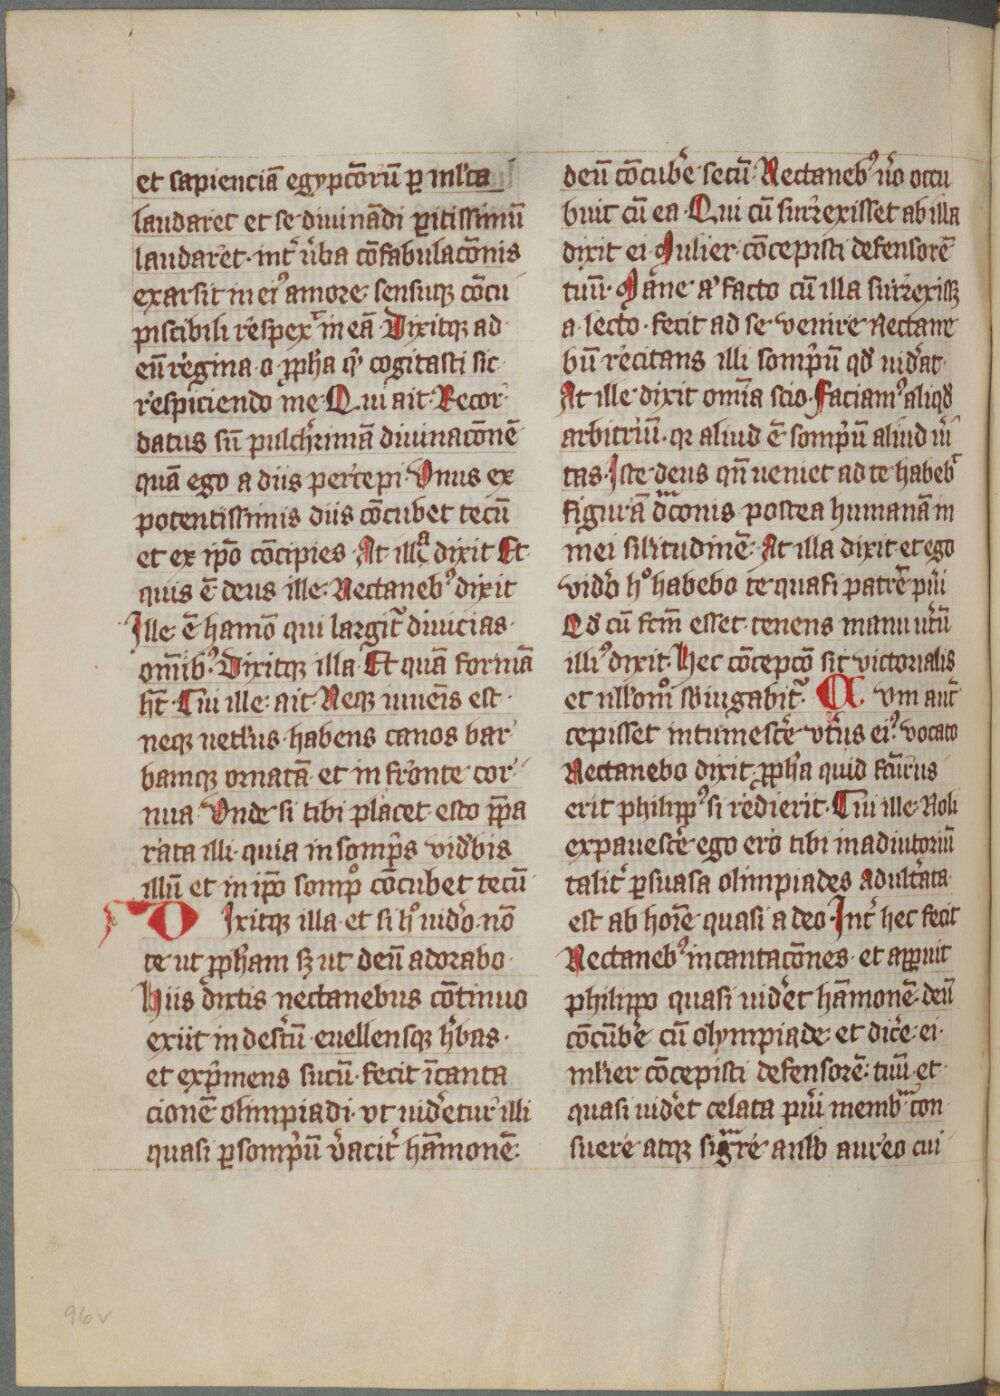 et sapienciā egypcōrū ꝑ ml'ca
laudaret et se diuinādi ꝑitissimū
laudaret · int͛ ūba cōfabulacōnis
exarsit in eiꝰ amore sensuqꝫ cōcu
piscibili respex͛ in eā Dixitqꝫ ad
eū regina · o ꝓph̄a qͥ cogitasti sic ·
respiciendo me · Qui ait · Recor
datus sū pulch͛rimā diuinacōnē
quā ego a diis percepi · Vnus ex
potentissimis diis cōcubet tecū
et ex ip̄o cōcipies · At illa dixit Et
quis ē deus ille · Nectanebꝰ dixit
Ille ē hamō qui largit͛ diuicias ·
om̄ibꝰ · Dixitqꝫ illa · Et quā formā
h̄t · Cui ille ait · Neqꝫ iuuenis est ·
neqꝫ uetl'us · habens canos bar
bamqꝫ ornatā · et in fronte cor
nua · Vnde si tibi placet · esto p̄pa
rata illi · quia in somp̄s vid͛bis
illū et in ip̄o sompº cōcubet tecū ·
Dixitqꝫ illa · et si hº uid͛o · nō
te ut ꝓph̄am sꝫ ut deū adorabo ·
Hiis dictis nectanebus cōtinuo
exiit in des͛tū · euellensqꝫ h͛bas ·
et exp͛mens sucū · fecit īcanta
cionē olimpiadi · vt uid͛etur illi
quasi ꝑ somp͛ū v͛acit͛ hāmonē ·
deū cōcub͛e secū · Nectanebꝰ u͛o occu
buit cū ea · Qui cū surrexisset ab illa
dixit ei · Mulier · cōcepisti defensorē
tuū · Mane aͭ facto cū illa surrexisꝫ
a · lecto · fecit ad se venire nectane
bū recitans illi somp͛ū qd̄ uid͛at ·
At ille dixit om̄ia scio · Faciamꝰ aliqd̄
arbitriū · qꝛ aliud ē somp͛ū aliud u͛i
tas · Iste deus qn̄ ueniet ad te habeb͛
figurā dͣconis · postea humanā in
mei sil'itudinē · At illa dixit et ego
vid͛o hº habebo te quasi patrē p͛ui
Qd̄ cū fc̄m esset · tenens manu ut͛ū
illiꝰ dixit · Hec cōcepcō sit victorialis
et null'omº s͛biugabit͛ · Cum aut͛
cepisset intumesc͛e vt͛us eiꝰ · vocato
Nectanebo dixit · ꝓph̄a quid fc̄urus
erit philippꝰ si redierit · Cui ille · Noli
expauesc͛e ego ero tibi in adiutoriū
talit͛ ꝑsuasa olimpiades adult͛ata
est ab hor͛e quasi a deo · Int͛ hec fecit
Nectanebꝰ incantacōnes · et apparuit
philippo quasi uid͛et hāmonē · deū
cōcūb͛e cū olympiade · et dic͛e · ei ·
mu͛lier cōcepisti defensorē · tuū · et
quasi uid͛et celata p͛ui membͣ con
suere atqꝫ sigͣre anulo aureo cui
96v